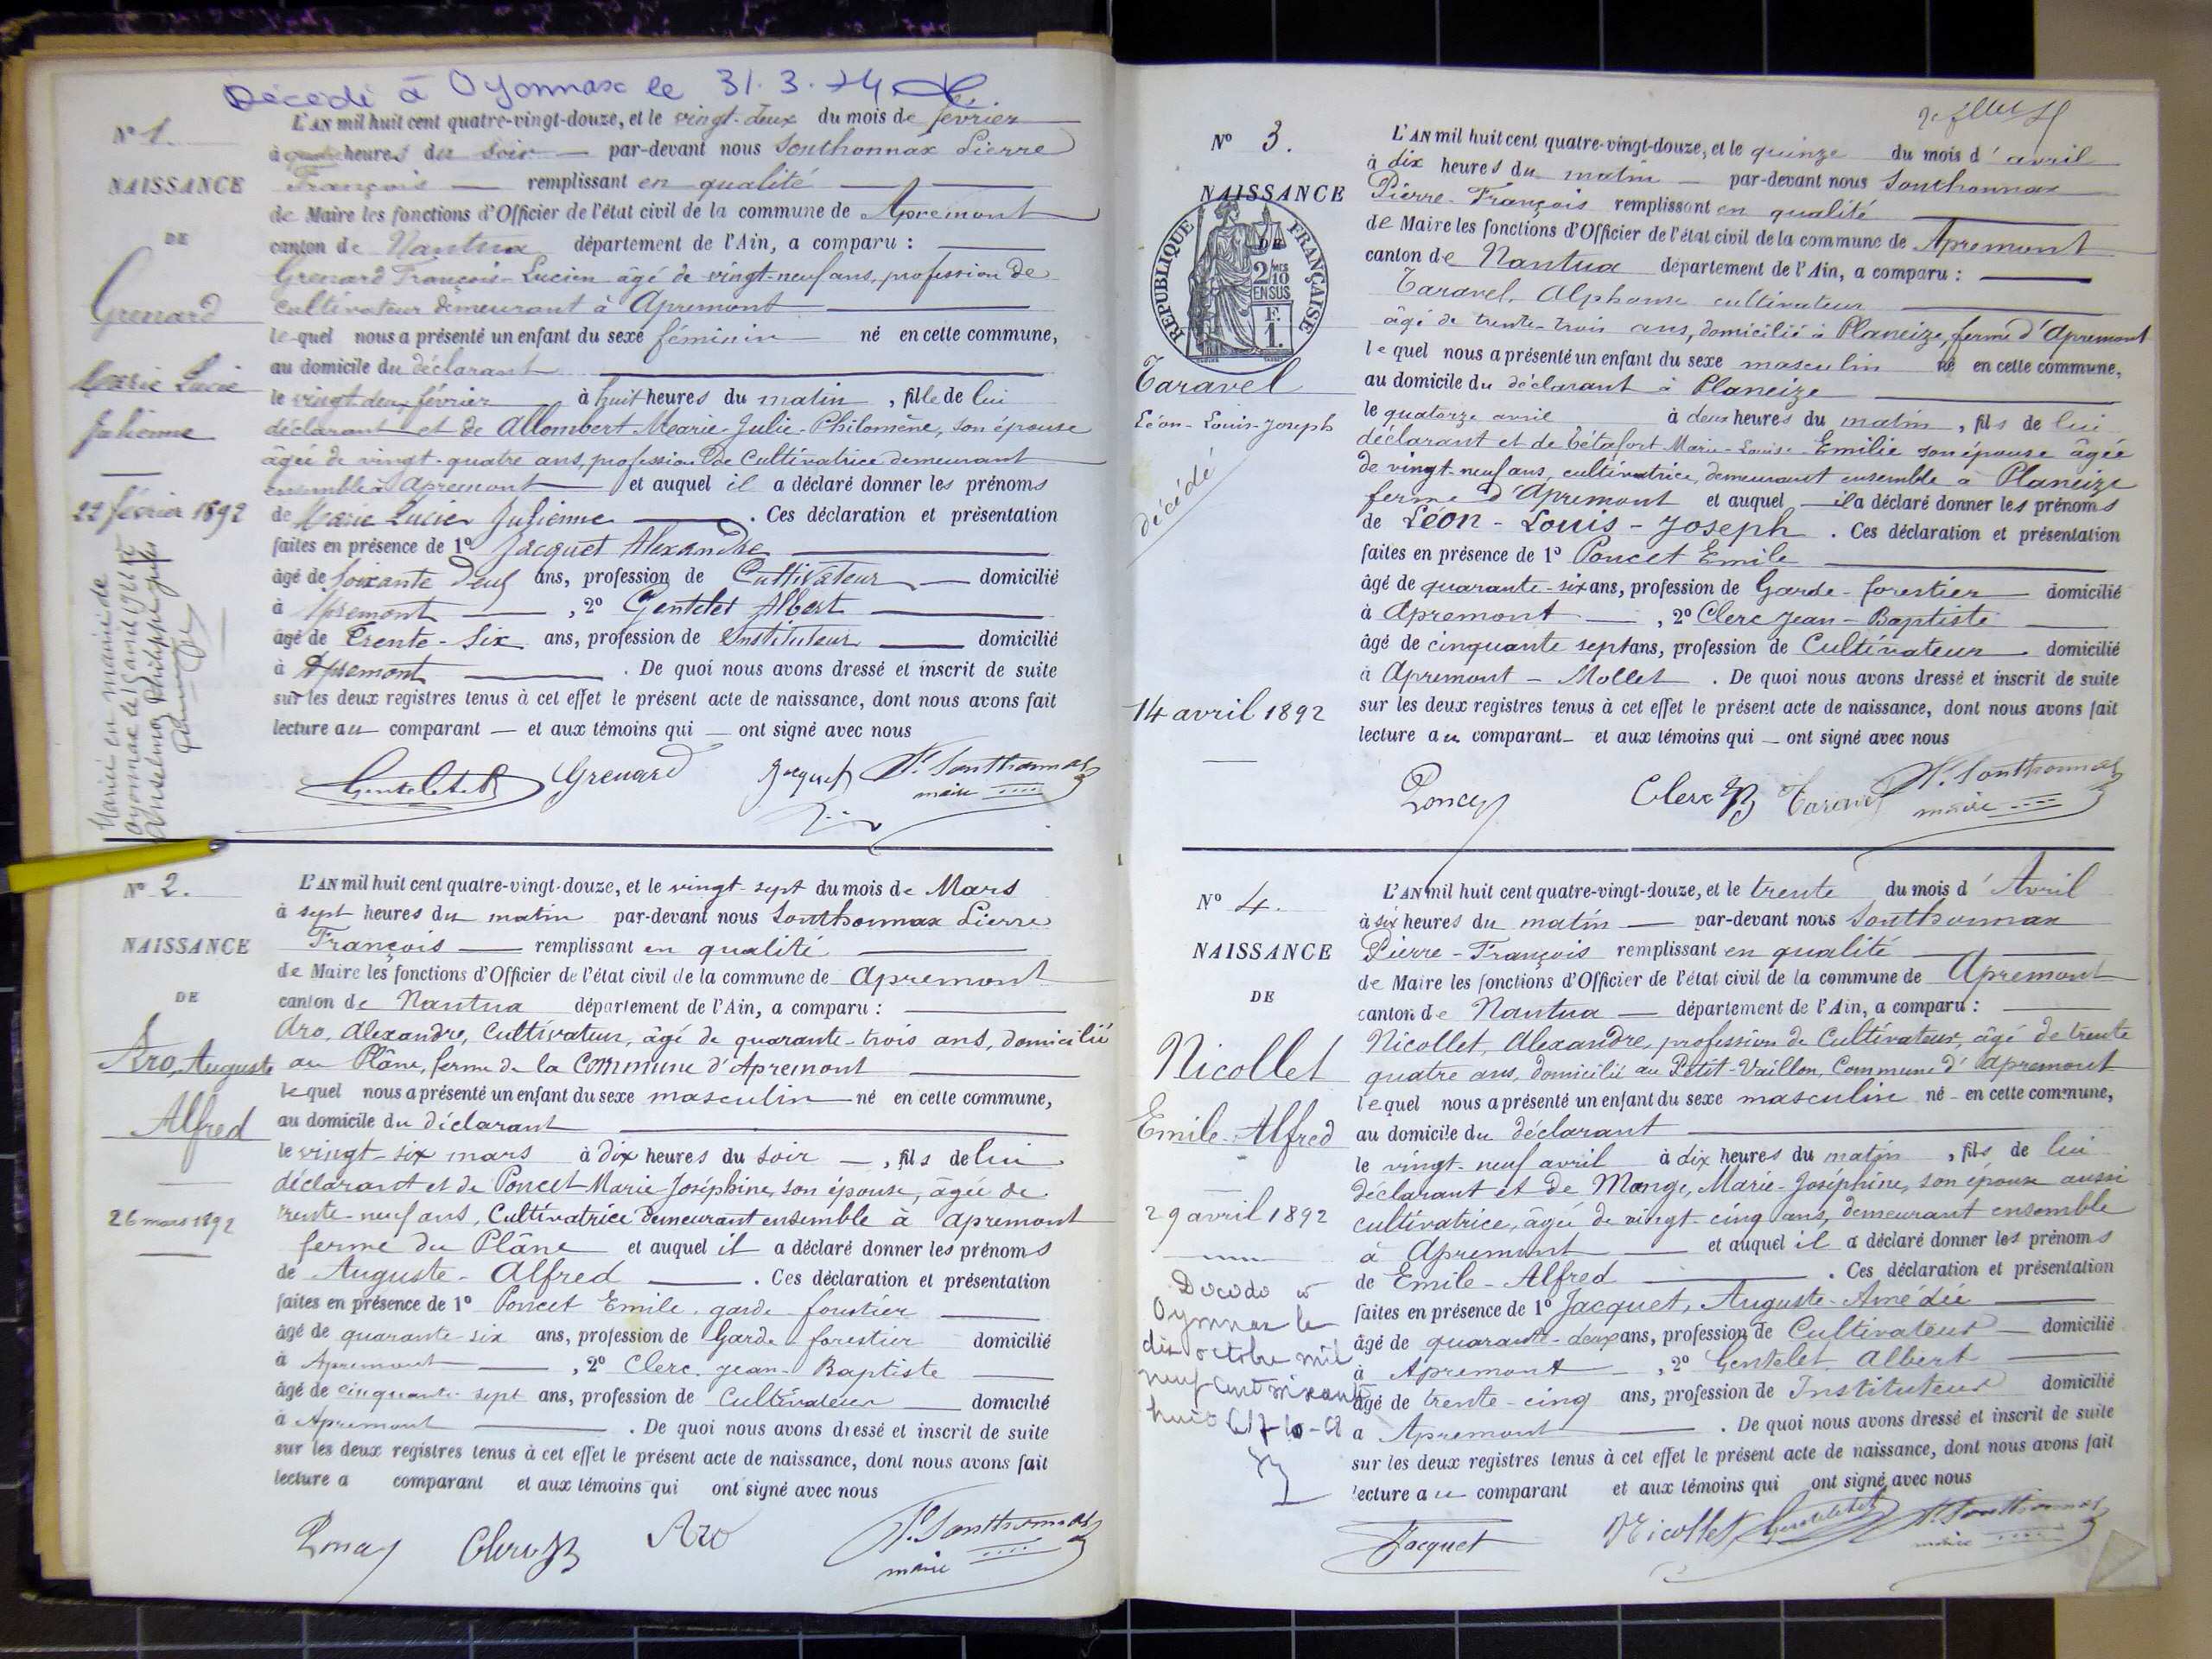 Décédé à Oyonnax le 31.3.74
N° 1.
NAISSANCE
DE
Grenard
Marie Lucie
Julienne
22 février 1892
Marié en mairie de
Oyonnax le 15 avril 1926
Anselme Philippe Jules
L'AN mil huit cent quatre-vingt-douze, et le vingt-deux du mois de février
à quatre heures du soir — par-devant nous Sonthonnax Pierre
François — remplissant en qualité
de Maire les fonctions d'Officier de l'état civil de la commune de Apremont
canton de Nantua département de l'Ain, a comparu :
Grenard François-Lucien âgé de vingt-neuf ans, profession de
cultivateur demeurant à Apremont
lequel nous a présenté un enfant du sexe féminin né en cette commune,
au domicile du déclarant
le vingt-deux février à huit heures du matin, fille de lui
déclarant et de Allombert Marie-Julie-Philomène, son épouse
âgée de vingt-quatre ans, profession de Cultivatrice demeurant
ensemble à Apremont et auquel il a déclaré donner les prénoms
de Marie Lucie Julienne . Ces déclaration et présentation
faites en présence de 1° Jacquet Alexandre
âgé de soixante deux ans, profession de Cultivateur — domicilié
à Apremont , 2° Gentelet Albert
âgé de Trente-Six ans, profession de Instituteur domicilié
à Apremont . De quoi nous avons dressé et inscrit de suite
sur les deux registres tenus à cet effet le présent acte de naissance, dont nous avons fait
lecture au comparant — et aux témoins qui — ont signé avec nous
Gentelet A Grenard Jacquet P. Sonthonnax
maire
N° 2.
NAISSANCE
DE
Aro, Auguste
Alfred
26 mars 1892
L'AN mil huit cent quatre-vingt-douze, et le vingt-sept du mois de Mars
à sept heures du matin par-devant nous Sonthonnax Pierre
François — remplissant en qualité
de Maire les fonctions d'Officier de l'état civil de la commune de Apremont
canton de Nantua département de l'Ain, a comparu :
Aro, Alexandre, Cultivateur, âgé de quarante-trois ans, domicilié
au Plâne, ferme de la Commune d'Apremont
lequel nous a présenté un enfant du sexe masculin né en cette commune,
au domicile du déclarant
le vingt-six mars à dix heures du soir —, fils de lui
déclarant et de Poncet Marie-Joséphine, son épouse, âgée de
trente-neuf ans, Cultivatrice demeurant ensemble à Apremont
ferme du Plâne et auquel il a déclaré donner les prénoms
de Auguste-Alfred . Ces déclaration et présentation
faites en présence de 1° Poncet Emile, garde forestier
âgé de quarante-six ans, profession de Garde-forestier domicilié
à Apremont , 2° Clerc Jean-Baptiste
âgé de cinquante-sept ans, profession de Cultivateur domicilié
à Apremont . De quoi nous avons dressé et inscrit de suite
sur les deux registres tenus à cet effet le présent acte de naissance, dont nous avons fait
lecture a comparant et aux témoins qui ont signé avec nous
Poncet Clerc JB Aro P. Sonthonnax
maire
N° 3.
NAISSANCE
DE
RÉPUBLIQUE FRANÇAISE
2/10
EN SUS
F.
1.
Taravel
Léon-Louis-Joseph
décédé
14 avril 1892
L'AN mil huit cent quatre-vingt-douze, et le quinze du mois d'avril
à dix heures du matin — par-devant nous Sonthonnax
Pierre-François remplissant en qualité
de Maire les fonctions d'Officier de l'état civil de la commune de Apremont
canton de Nantua département de l'Ain, a comparu :
Taravel, Alphonse cultivateur
âgé de trente-trois ans, domicilié à Planeize, ferme d'Apremont
lequel nous a présenté un enfant du sexe masculin né en cette commune,
au domicile du déclarant à Planeize
le quatorze avril à deux heures du matin, fils de lui
déclarant et de Bétafort Marie-Louise-Emilie son épouse âgée
de vingt-neuf ans, cultivatrice, demeurant ensemble à Planeize
ferme d'Apremont et auquel il a déclaré donner les prénoms
de Léon-Louis-Joseph . Ces déclaration et présentation
faites en présence de 1° Poncet Emile
âgé de quarante-six ans, profession de Garde-forestier domicilié
à Apremont , 2° Clerc Jean-Baptiste
âgé de cinquante sept ans, profession de Cultivateur domicilié
à Apremont-Mollet . De quoi nous avons dressé et inscrit de suite
sur les deux registres tenus à cet effet le présent acte de naissance, dont nous avons fait
lecture au comparant — et aux témoins qui — ont signé avec nous
Poncet Clerc JB Taravel P. Sonthonnax
maire
N° 4.
NAISSANCE
DE
Nicollet
Emile-Alfred
29 avril 1892
Décédé à
Oyonnax le
dix octobre mil
neuf cent soixante
huit
L'AN mil huit cent quatre-vingt-douze, et le trente du mois d'Avril
à six heures du matin — par-devant nous Sonthonnax
Pierre-François remplissant en qualité
de Maire les fonctions d'Officier de l'état civil de la commune de Apremont
canton de Nantua — département de l'Ain, a comparu :
Nicollet, Alexandre, profession de Cultivateur, âgé de trente
quatre ans, domicilié au Petit-Vaillon, Commune d'Apremont
lequel nous a présenté un enfant du sexe masculin né en cette commune,
au domicile du déclarant
le vingt-neuf avril à dix heures du matin, fils de lui
déclarant et de Monge, Marie-Joséphine, son épouse aussi
cultivatrice, âgée de vingt-cinq ans, demeurant ensemble
à Apremont et auquel il a déclaré donner les prénoms
de Emile-Alfred . Ces déclaration et présentation
faites en présence de 1° Jacquet, Auguste-Amédée
âgé de quarante-deux ans, profession de Cultivateur — domicilié
à Apremont , 2° Gentelet Albert
âgé de trente-cinq ans, profession de Instituteur domicilié
à Apremont . De quoi nous avons dressé et inscrit de suite
sur les deux registres tenus à cet effet le présent acte de naissance, dont nous avons fait
lecture au comparant et aux témoins qui ont signé avec nous
Jacquet Nicollet Gentelet P. Sonthonnax
maire